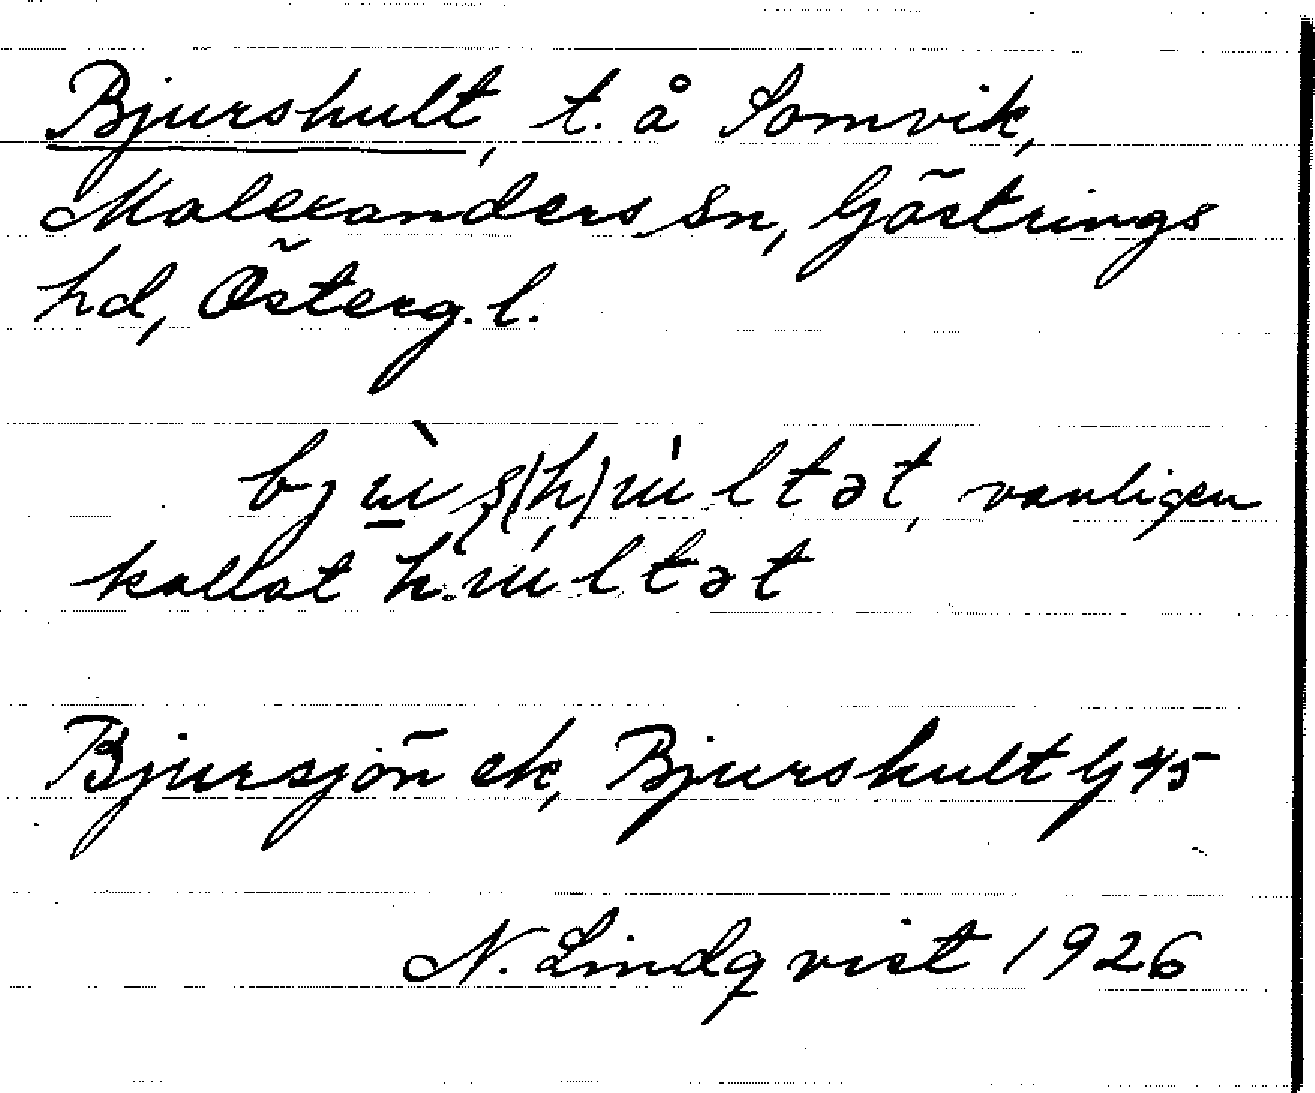 Bjurshult, t. å Somvik,
Malexanders sn, Göstrings
hd, Österg. l.
vanligen
kallat
Bjursjön ek, Bjurshult G 45
N. Lindqvist 1926